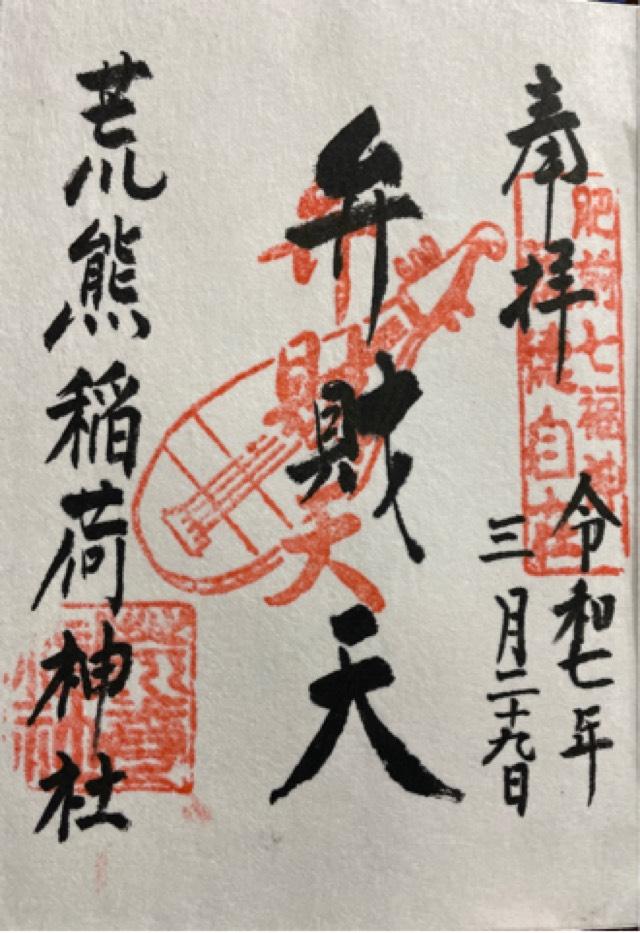 奉拝
肥前七福神
令和七年
三月二十九日
弁財天
財天
荒熊稲荷神社